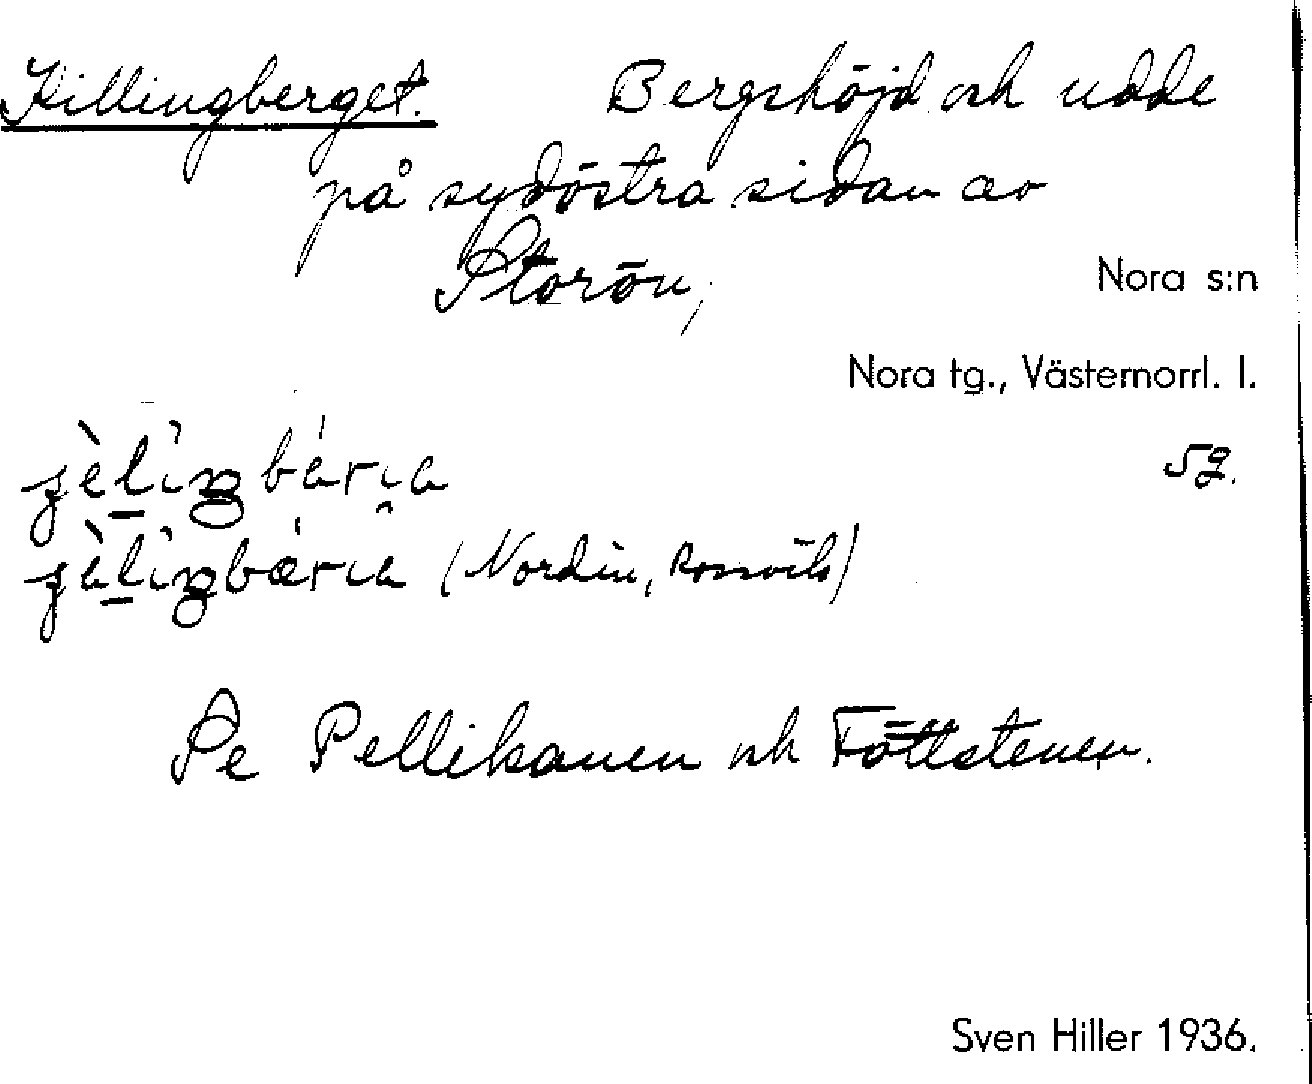 Killingberget. Bergshöjd och udde
på sydöstra sidan av
Storön,
Nora s:n
Nora tg., Västernorrl. l.
59.
(Nordin, Rossvik)
Se Pellikanen och Föttstenen.
Sven Hiller 1936.